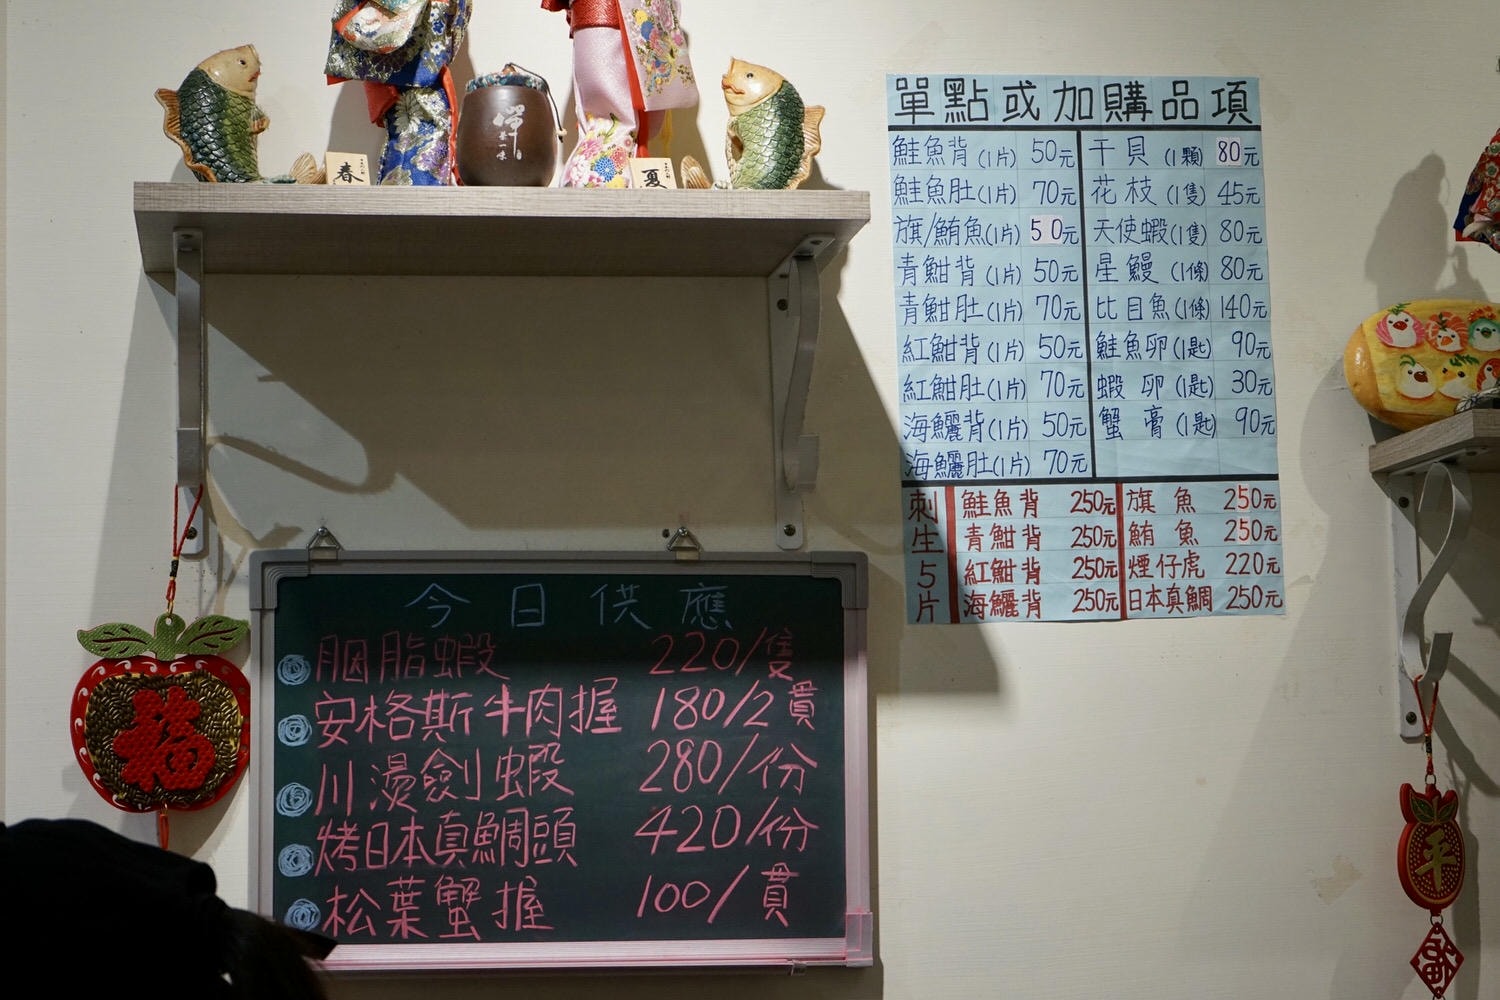 禪
茶一味
春
夏
單點或加購品項
鮭魚背(1片) 50元
鮭魚肚(1片) 70元
旗/鮪魚(1片) 50元
青魽背(1片) 50元
青魽肚(1片) 70元
紅魽背(1片) 50元
紅魽肚(1片) 70元
海鱺背(1片) 50元
海鱺肚(1片) 70元
干貝(1顆) 80元
花枝(1隻) 45元
天使蝦(1隻) 80元
星鰻(1條) 80元
比目魚(1條) 140元
鮭魚卵(1匙) 90元
蝦卵(1匙) 30元
蟹膏(1匙) 90元
刺生5片
鮭魚背 250元
青魽背 250元
紅魽背 250元
海鱺背 250元
旗魚 250元
鮪魚 250元
煙仔虎 220元
日本真鯛 250元
今日供應
胭脂蝦 220/隻
安格斯牛肉握 180/2貫
川燙劍蝦 280/份
烤日本真鯛頭 420/份
松葉蟹握 100/貫
福
平
福